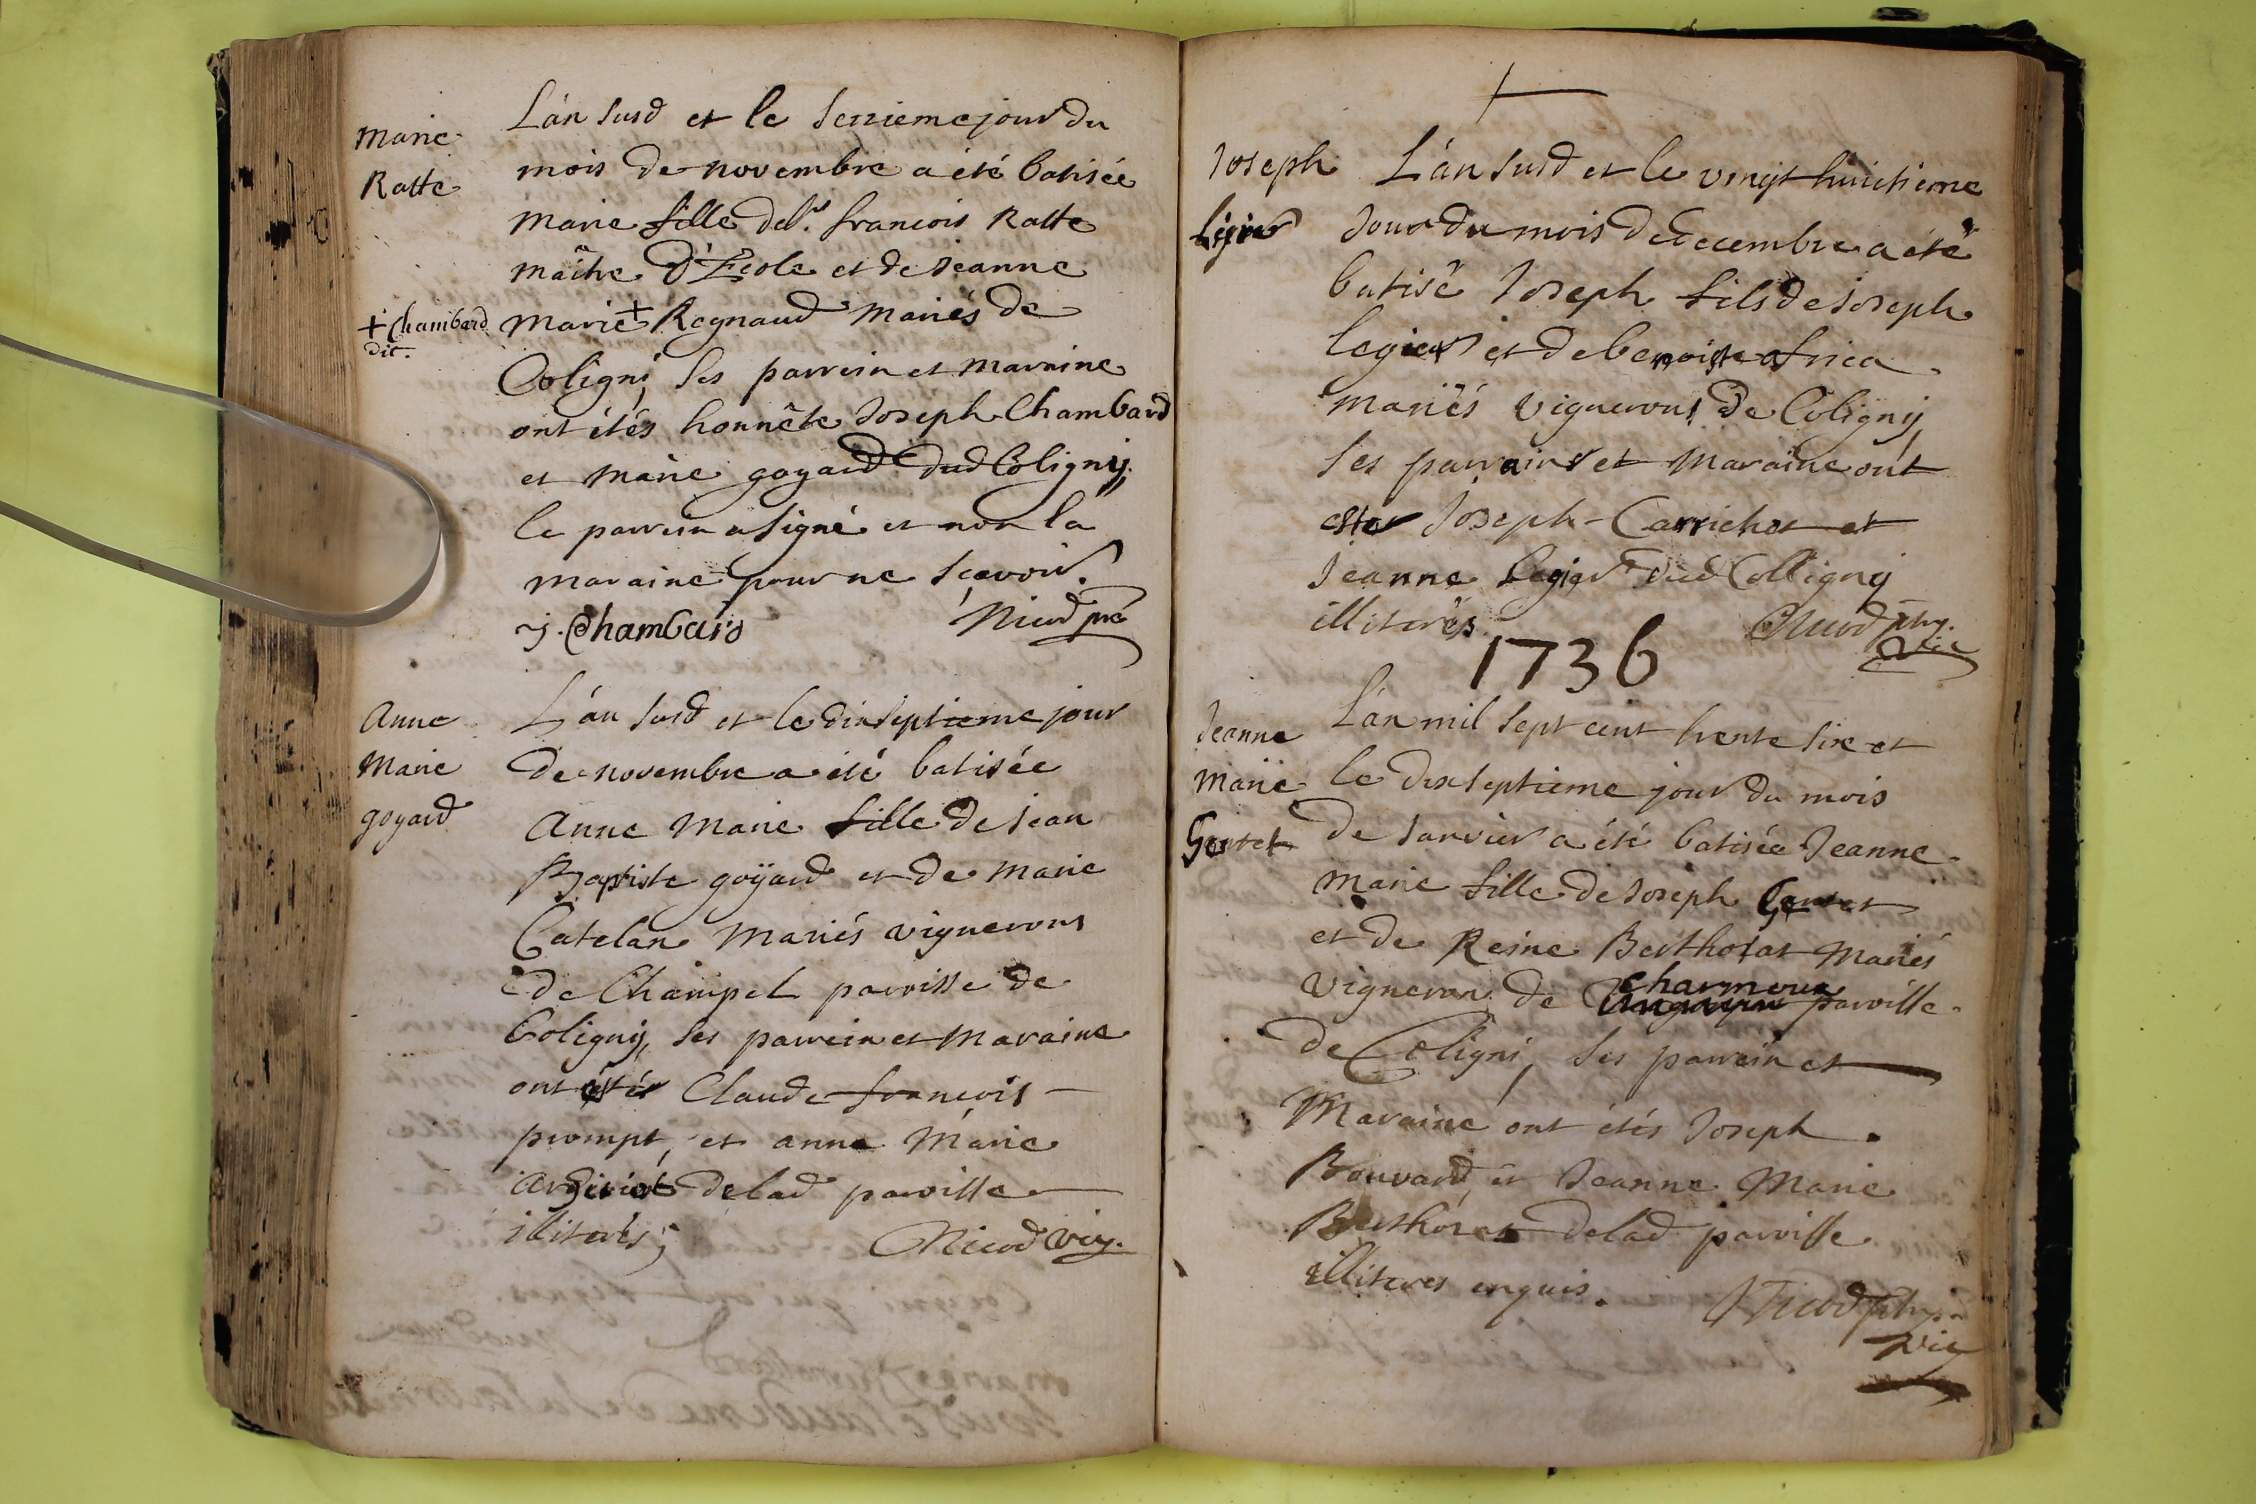 Marie
Ratte
L'an susd et le sezieme jour du
mois de novembre a été batisée
Marie fille de s.r francois Ratte
maitre d'Ecole et de jeanne
+ Chambard
dit.
Marie + Regnaud Mariés de
Coligni, ses parrein et marraine
ont étés honnête Joseph Chambard
et Marie goyard dud Coligny.
le parrein a signé et non la
maraine pour ne sçavoir.
j. Chambard
Nicod
Anne
Marie
goyard
L'an susd et le dixseptieme jour
de novembre a été batisée
Anne Marie fille de Jean
Baptiste goÿard et de Marie
Catelan Mariés vignerons
de Champel parroisse de
Coligny, ses parrein et Maraine
ont étés Claude francois
prompt, et anne Marie
delad parroisse
illiterés;
Nicod vic.
Joseph
Legier
L'an susd et le vingt huictieme
Jour du mois de decembre a été
batisé Joseph fils de Joseph
legier et de benoiste africa
Mariés vignerons de Coligny
ses parrain et Maraine ont
estes Joseph Carrichot et
Jeanne Legier dud Colligny
illiterés.
Nicod ptre.
vic
1736
Jeanne
Marie
L'an mil sept cent trente six et
le dixseptieme jour du mois
de Janvier a été batisée Jeanne
Marie fille de Joseph
et de Reine Berthorat Mariés
vigneron de charmoux parroisse
de Coligni, ses parrein et
Maraine ont étés Joseph
Bouvard et Jeanne Marie
Berthorat delad parroisse
illiteres enquis.
Nicod ptre
vic